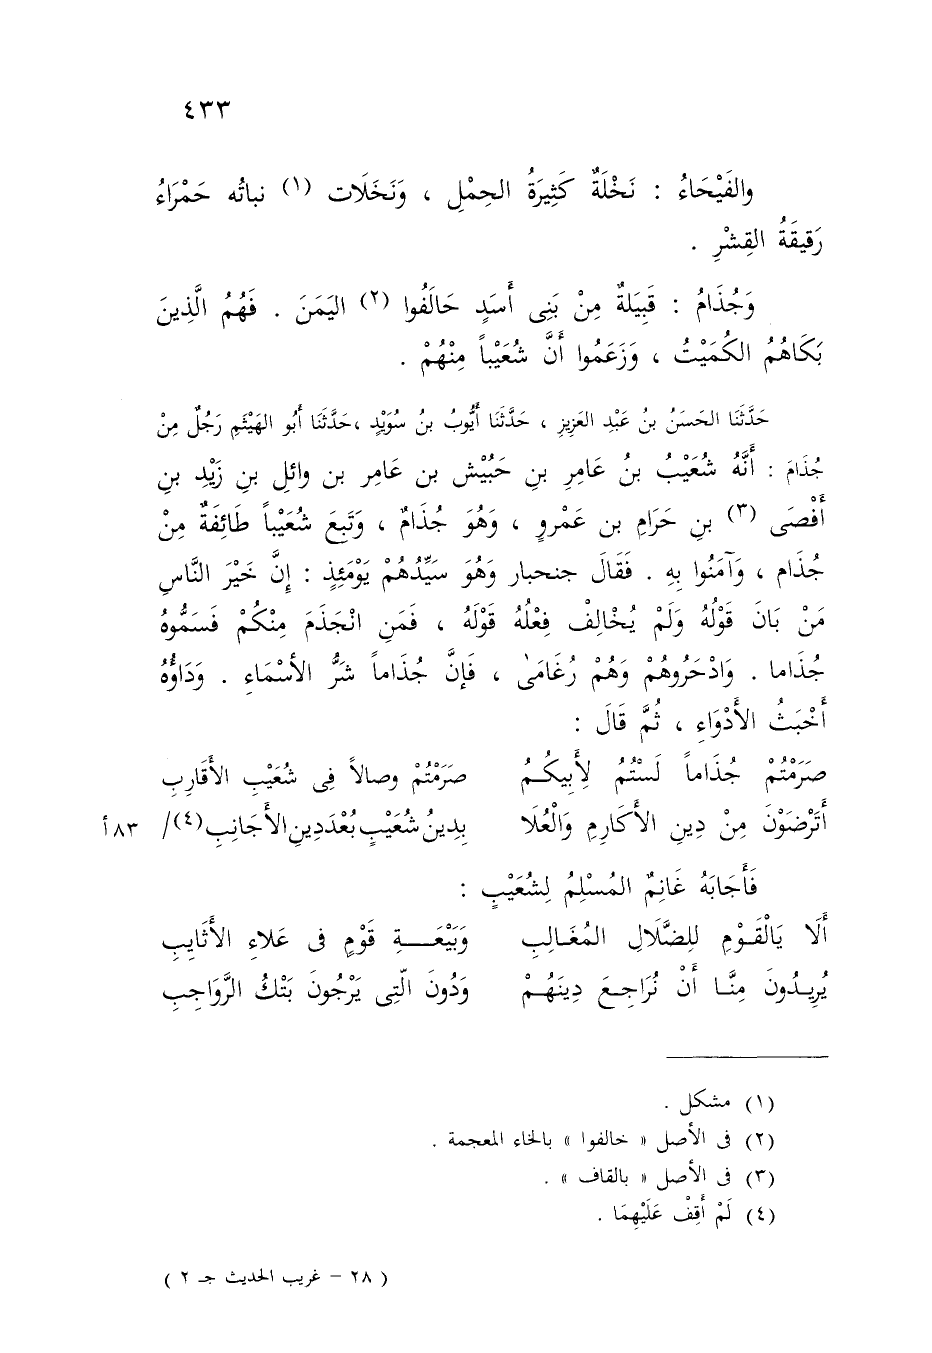 ٤٣٣
والفَيْحَاءُ : نَخْلَةٌ كَثِيرَةُ الحِمْلِ ، وَنَخَلَات (١) نباتُه حَمْرَاءُ
رَقيقَةُ القِشْرِ .
وَجُذَامُ : قَبِيَلةٌ مِنْ بَنِى أَسَدٍ حَالَفُوا (٢) اليَمَنَ . فَهُمُ الَّذِينَ
بَكَاهُمُ الكُمَيْتُ ، وَزَعَمُوا أَنَّ شُعَيْباً مِنْهُمْ .
حَدَّثَنَا الحَسَنُ بنُ عَبْدِ العَزِيزِ ، حَدَّثَنَا أَيُّوبُ بنُ سُوَيْدٍ ،حَدَّثَنَا أَبُو الهَيْثَمِ رَجُلٌ مِنْ
جُذَامَ : أَنَّهُ شُعَيْبُ بنُ عَامِرِ بنِ حَبُيْش بن عَامِر بن وائلِ بنِ زَيْدِ بنِ
أَفْصَى (٣) بنِ حَرَامِ بن عَمْرٍو ، وَهُوَ جُذَامٌ ، وَتَبِعَ شُعَيْباً طَائِفَةٌ مِنْ
جُذَام ، وَآمَنُوا بِهِ . فَقَالَ جنحبار وَهُوَ سَيِّدُهُمْ يَوْمَئِذٍ : إِنَّ خَيْرَ النَّاسِ
مَنْ بَانَ قَوْلُهُ وَلَمْ يُخْالِفْ فِعْلُهُ قَوْلَهُ ، فَمَنِ انْجَذَمَ مِنْكُمْ فَسَمُّوهُ
جُذَاما . وَادْحَرُوهُمْ وَهُمْ رُغَامَىٰ ، فَإِنَّ جُذَاماً شَرُّ الأسْمَاءِ . وَدَاؤُهُ
أَخْبَثُ الأَدْوَاءِ ، ثُمَّ قَالَ :
صَرَمْتُمْ جُذَاماً لَسْتُمُ لِأَبِيكُـمُ صَرَمْتُمْ وصالاً فِى شُعَيْبِ الأَقَارِبِ
أَتَرْضَوْنَ مِنْ دِينِ الأَكَارِمِ وَالْعُلَا بِدِينُ شُعَيْبٍ بُعْدَدِينِ الأَجَانِبِ(٤)/ ٨٣أ
فَأَجَابَهُ غَانِمٌ المُسْلِمُ لِشُعَيْبٍ :
أَلَا يَالَقْوْمِ لِلضَّلَالِ المُغَـالِبِ وَبَيْعَـــةِ قَوْمٍ فى عَلاءِ الأَثَايِبِ
يُرِيـدُونَ مِنَّـا أَنْ نُرَاجِـعَ دِينَهُـمْ وَدُونَ الَّتِى يَرْجُونَ بَتْكُ الرَّوَاجِبِ
(١) مشكل .
(٢) فى الأصل « خالفوا » بالخاء المعجمة .
(٣) فى الأصل « بالقاف » .
(٤) لَمْ أَقِفْ عَلَيْهِمَا .
( ٢٨ – غريب الحديث جـ ٢ )